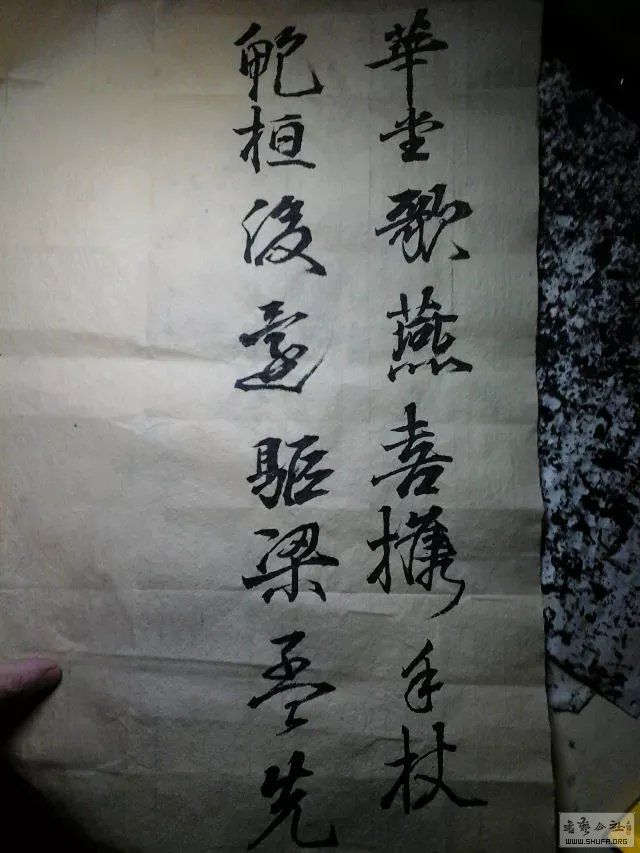 華堂歌燕喜攜手杖
鮑桓後邁驅梁孟先
書藝公社
WWW.SHUFA.ORG